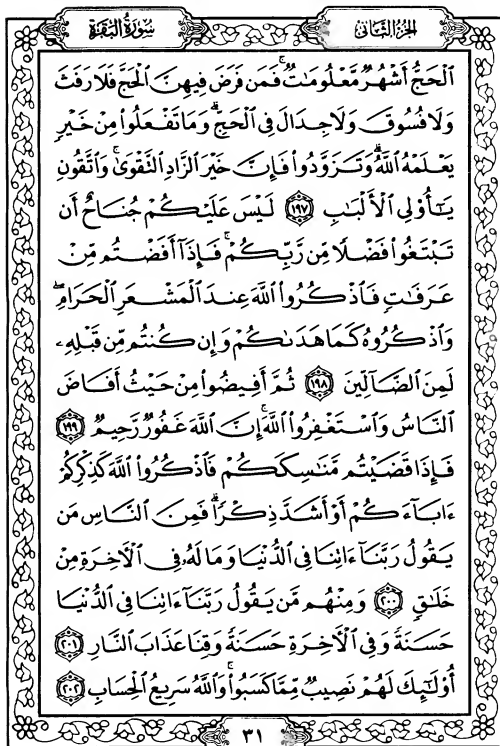 سُورَةُ البَقَرَةِ
الجُزْءُ الثَّانِي
ٱلۡحَجُّ أَشۡهُرٞ مَّعۡلُومَٰتٞۚ فَمَن فَرَضَ فِيهِنَّ ٱلۡحَجَّ فَلَا رَفَثَ
وَلَا فُسُوقَ وَلَا جِدَالَ فِي ٱلۡحَجِّۗ وَمَا تَفۡعَلُواْ مِنۡ خَيۡرٖ
يَعۡلَمۡهُ ٱللَّهُۗ وَتَزَوَّدُواْ فَإِنَّ خَيۡرَ ٱلزَّادِ ٱلتَّقۡوَىٰۚ وَٱتَّقُونِ
يَٰٓأُوْلِي ٱلۡأَلۡبَٰبِ ١٩٧ لَيۡسَ عَلَيۡكُمۡ جُنَاحٌ أَن
تَبۡتَغُواْ فَضۡلٗا مِّن رَّبِّكُمۡۚ فَإِذَآ أَفَضۡتُم مِّنۡ
عَرَفَٰتٖ فَٱذۡكُرُواْ ٱللَّهَ عِندَ ٱلۡمَشۡعَرِ ٱلۡحَرَامِۖ
وَٱذۡكُرُوهُ كَمَا هَدَىٰكُمۡ وَإِن كُنتُم مِّن قَبۡلِهِۦ
لَمِنَ ٱلضَّآلِّينَ ١٩٨ ثُمَّ أَفِيضُواْ مِنۡ حَيۡثُ أَفَاضَ
ٱلنَّاسُ وَٱسۡتَغۡفِرُواْ ٱللَّهَۚ إِنَّ ٱللَّهَ غَفُورٞ رَّحِيمٞ ١٩٩
فَإِذَا قَضَيۡتُم مَّنَٰسِكَكُمۡ فَٱذۡكُرُواْ ٱللَّهَ كَذِكۡرِكُمۡ
ءَابَآءَكُمۡ أَوۡ أَشَدَّ ذِكۡرٗاۗ فَمِنَ ٱلنَّاسِ مَن
يَقُولُ رَبَّنَآ ءَاتِنَا فِي ٱلدُّنۡيَا وَمَا لَهُۥ فِي ٱلۡأٓخِرَةِ مِنۡ
خَلَٰقٖ ٢٠٠ وَمِنۡهُم مَّن يَقُولُ رَبَّنَآ ءَاتِنَا فِي ٱلدُّنۡيَا
حَسَنَةٗ وَفِي ٱلۡأٓخِرَةِ حَسَنَةٗ وَقِنَا عَذَابَ ٱلنَّارِ ٢٠١
أُوْلَٰٓئِكَ لَهُمۡ نَصِيبٞ مِّمَّا كَسَبُواْۚ وَٱللَّهُ سَرِيعُ ٱلۡحِسَابِ ٢٠٢
٣١